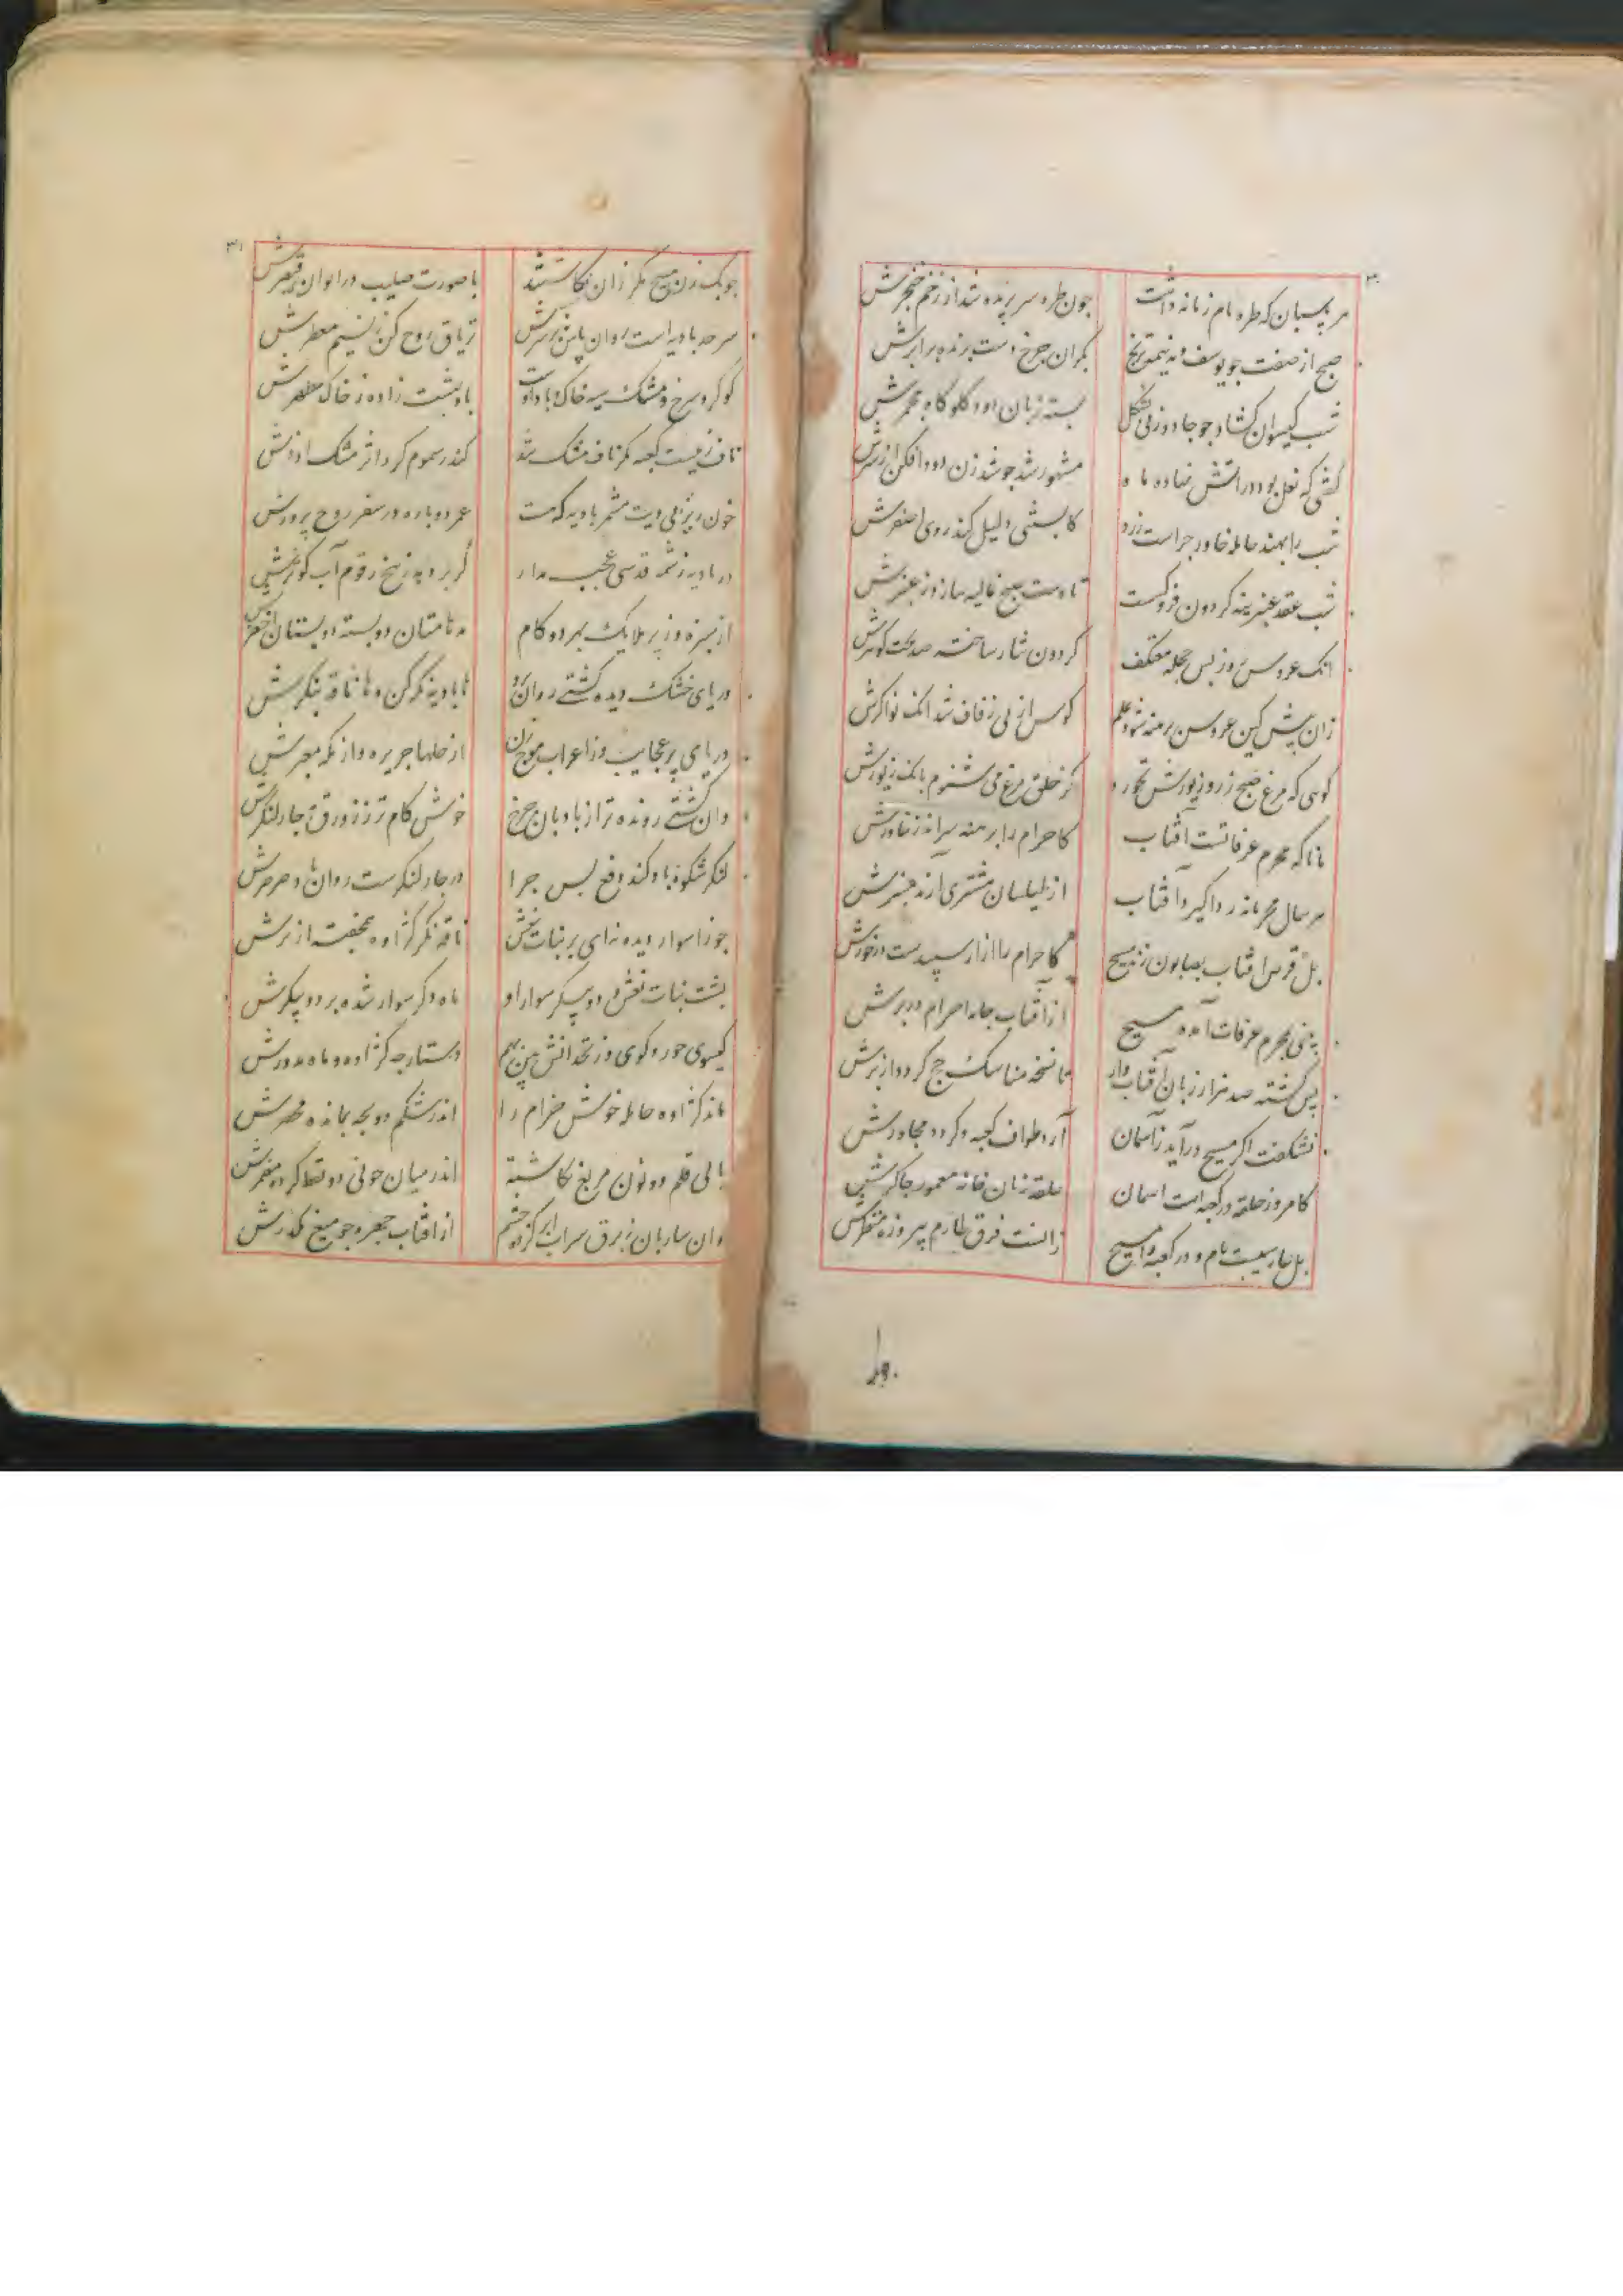 هر پاسبان که طره بام زمانه داشت
چون طره سر بریده شد از زخم خنجرش
صبح از صفت چو یوسف و مه نیمه ترنج
بکران چرخ دست بریده برابرش
شب گیسوان گشاد چو جادو زنی بشکل
بسته زبان ز دود گلوگاه مجمرش
گفتی که نعل بود در آتش نهاده ماه
مشهور شد چو شد زن دود افکن از سرش
شب را نهند حامله خاور چراست زرد
کابستنی دلیل کند روی اصفرش
شب عقد عنبرینه گردون فرو گسست
تا دست صبح غالیه سازد ز عنبرش
آنک عروس روز پس حجله معتکف
گردون نثار ساخته صد تخت گوهرش
زان پیش کین عروس برهنه شود علم
کوس از پی زفاف شد آنک نواگرش
گوئی که مرغ صبح زر و زیورش بخورد
کز حلق مرغ می شنوم بانگ زیورش
مانا که محرم عرفاتست آفتاب
کاحرام را برهنه سر آید ز خاورش
هر سال محرمانه ردا گیرد آفتاب
از طیلسان مشتری آرند میزرش
بل قرص آفتاب بصابون زند مسیح
کاحرام را ازار سپیدست در خورش
بینی بمحرم عرفات آمده مسیح
از آفتاب جامه احرام در برش
پس گشته صد هزار زبان آفتاب وار
تا نسخه مناسک حج گردد از برش
نشگفت اگر مسیح درآید ز آسمان
آرد طواف کعبه و گردد مجاورش
کامروز حلقه در کعبه است آسمان
حلقه زنان خانه معمور چاکرش
بل حارسیست بام و در کعبه را مسیح
زانست فرق طارم پیروزه منظرش
وان
چوبک زن مسیح مگر زان نگاشتند
با صورت صلیب در ایوان قیصرش
سرحد بادیه است روان باش بر سرش
تریاق روح کن ز نسیم معطرش
گوگرد سرخ و مشک سیه خاک و باد اوست
باد بهشت زاده ز خاک مطهرش
ناف زمیست کعبه مگر ناف مشک شد
کندر سموم کرد اثر مشک اذفرش
خون ریز بی دیت مشمر بادیه که هست
عمر دوباره در سفر روح پرورش
در بادیه ز شمه قدسی عجب مدار
گر بر دمد ز بیخ زقوم آب کوثرش
از سبزه و ز پر ملایک بهر دو گام
مدهامتان دو بسته دو بستان اخضرش
دریای خشک دیده کشتی روان او
ها بادیه نگر کن و ها ناقه بنگرش
دریای پر عجایب وز اعراب موج زن
از حلها جزیره و از مکه معبرش
وان کشتی رونده تر از بادبان چرخ
خوش گام تر ز زورق و جا لنگرش
لنگر شکوه باد کند دفع پس چرا
در چار لنگرست روان باد صرصرش
جوزا سوار دیده نه ای بر بنات نعش
ناقه نگر کژاوه بهم جفت از برش
پشت بنات نعش و دو پیکر سوار او
ماه دگر سوار شده بر دو پیکرش
گیسوی حور و گوی زنخدانش بین بهم
دستارچه کژاوه و ماه مدورش
ماند کژاوه حامله خوش خرام را
اندر شکم دو بچه بمانده محصرش
یا بی قلم دو نون مربع نگاشته
اندر میان چو تی دو نقط کرده مضمرش
وان ساربان ز برق سراب ابر کرده چشم
از آفتاب چهره چو میغ مکدرش